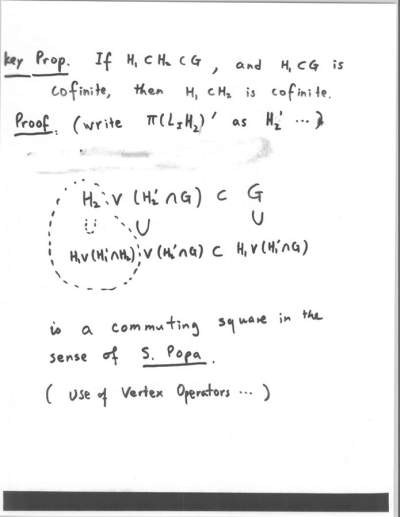 Key Prop. If H₁ ⊂ H₂ ⊂ G, and H₁ ⊂ G is
cofinite, then H₁ ⊂ H₂ is cofinite.
Proof. (write π(L_I H₂)' as H₂' ...)
H₂ ∨ (H₂' ∩ G) ⊂ G
∪ ∪ ∪
H₁ ∨ (H₁' ∩ H₂) ∨ (H₂' ∩ G) ⊂ H₁ ∨ (H₁' ∩ G)
is a commuting square in the
sense of S. Popa.
( Use of Vertex Operators ... )